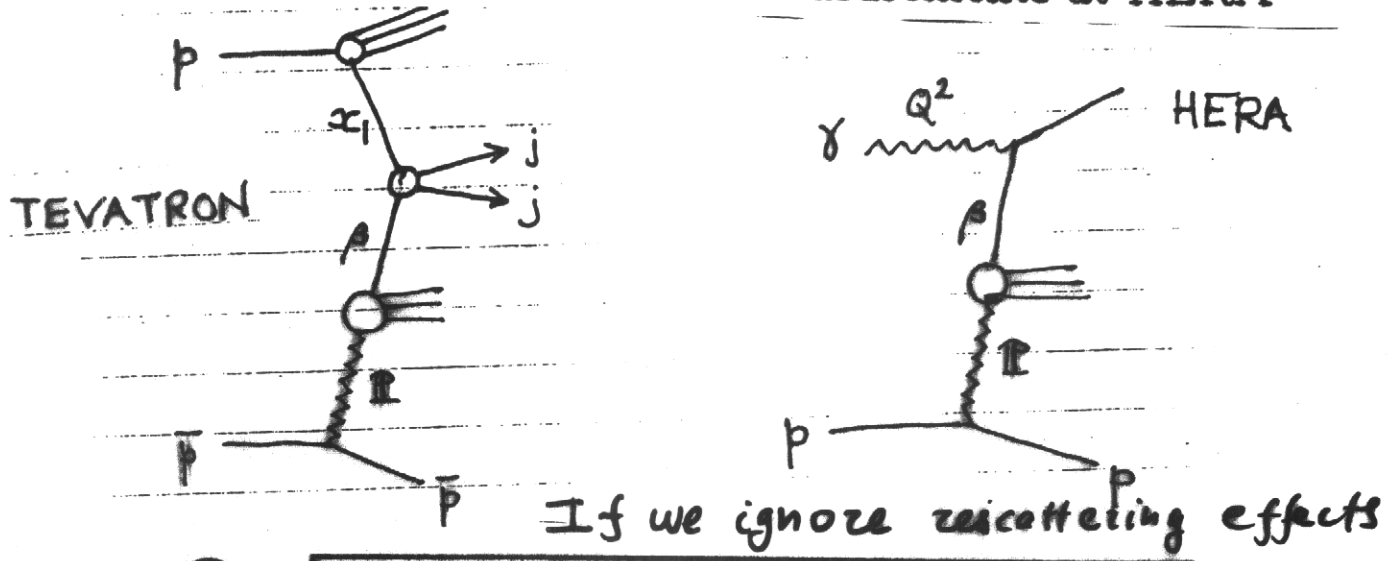 p
x₁
j
j
TEVATRON
β
ℙ
p̄
p̄
γ
Q²
HERA
β
ℙ
p
p
If we ignore rescattering effects